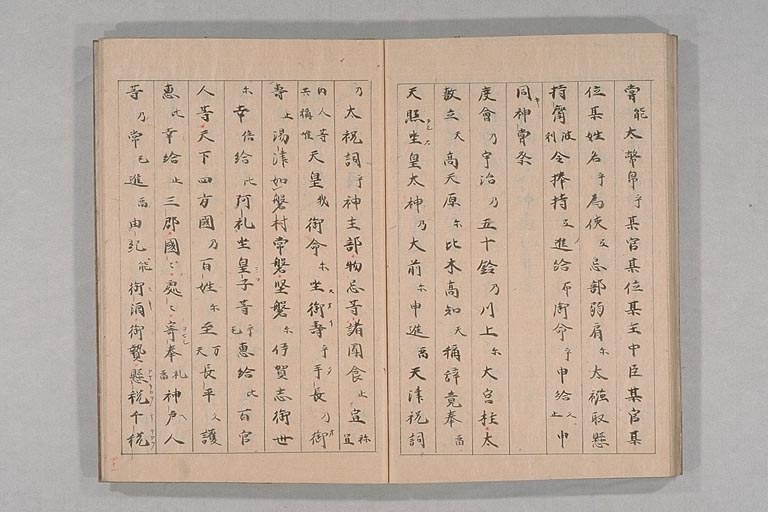 常能太幣帛乎某官某位某主中臣某官某
位某姓名乎為使天忌部弱肩尔太襁取懸
持齋波利令捧持天進給布御命乎申給止申
同神嘗祭
度會乃宇治乃五十鈴乃川上尔大宮柱太
敷立天高天原尔比木高知天稱辞竟奉留
天照坐皇太神乃大前尔申進留天津祝詞
乃太祝詞乎神主部物忌等諸聞食止宣祢宜
内人等共稱唯天皇我御命尔坐御壽乎手長乃御
壽止湯津如磐村常磐堅磐尔伊賀志御世
尔幸倍給比阿礼坐皇子等乎毛惠給比百官
人等天下四方國乃百姓尔至万天長平久護
惠比幸給止三郡國々處々寄奉礼留神戸人
等乃常毛進留由紀能御酒御贄懸税千税